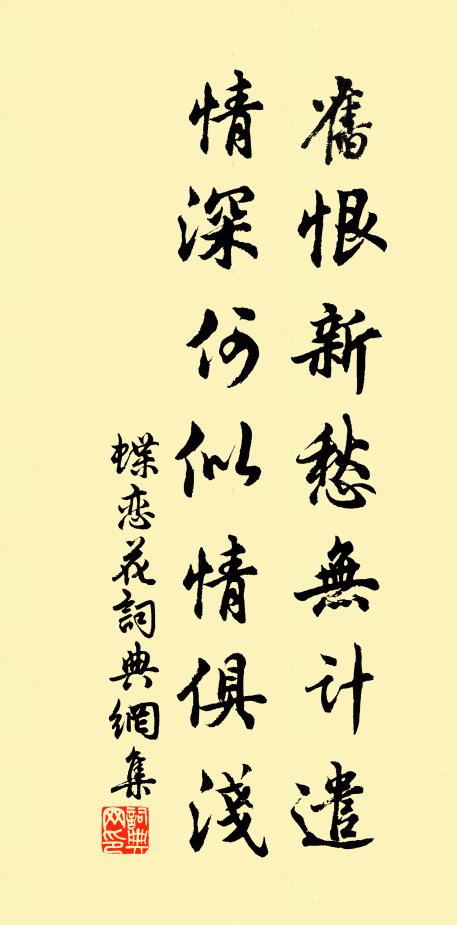 舊恨新愁無計遣
情深何似情俱淺
蝶恋花詞典網集
詞典
网印